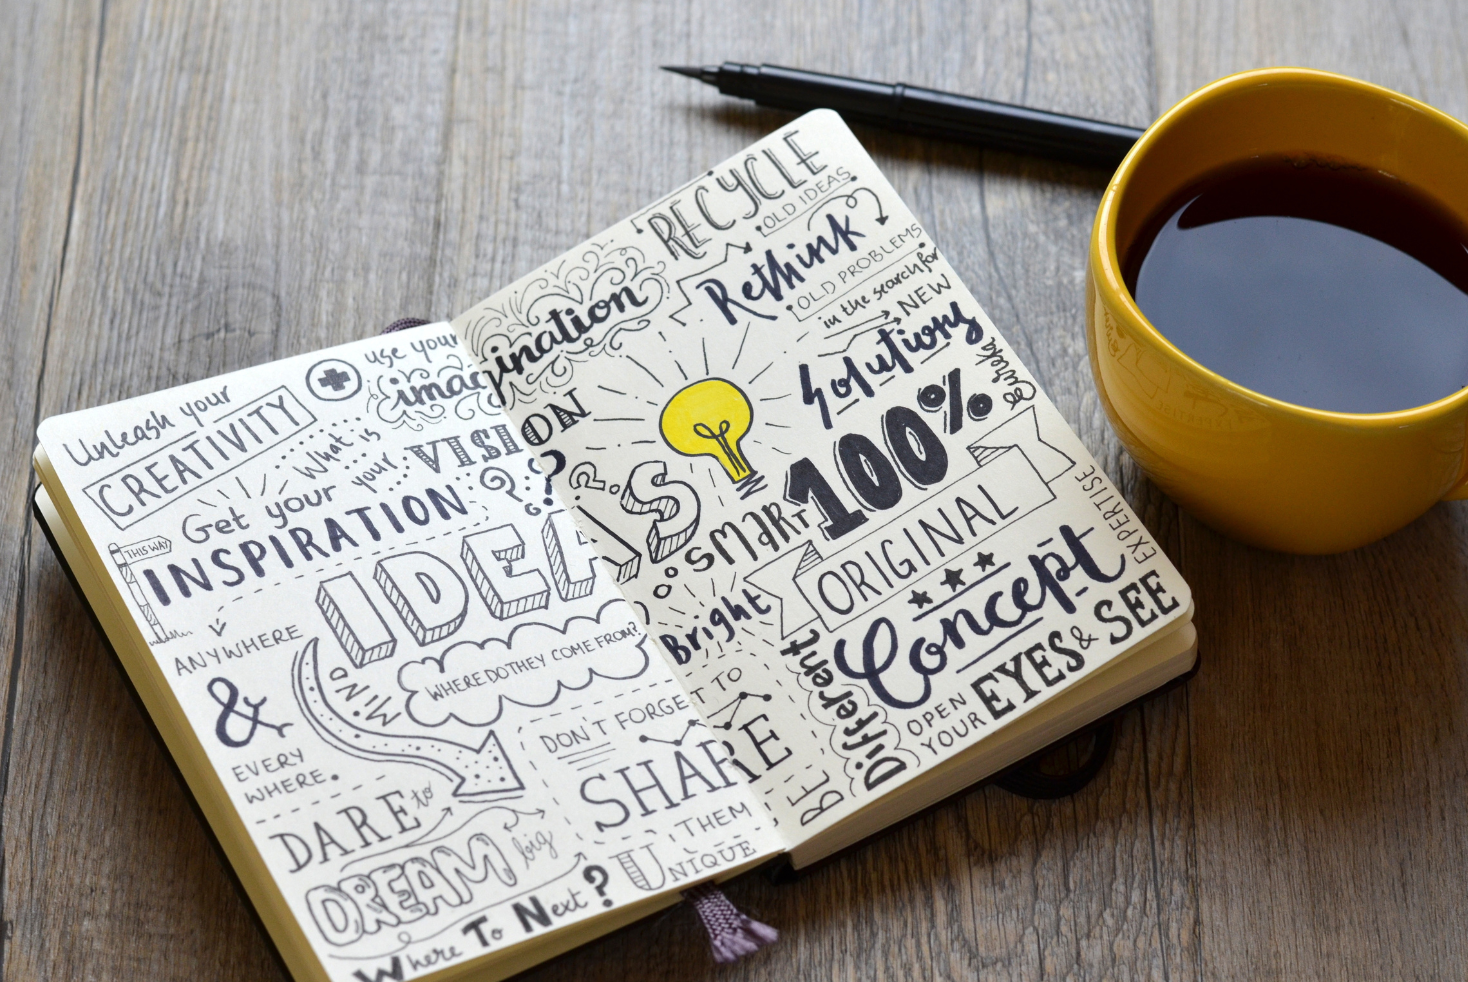 Unleash your
CREATIVITY
use your
imagination
What is
your
VISION
Get your
INSPIRATION
THIS WAY
ANYWHERE
&
EVERY
WHERE.
IDEAS
MIND
WHERE DO THEY COME FROM?
DON'T FORGET TO
SHARE
THEM
DARE to
DREAM big
UNIQUE
Where To Next?
RECYCLE
OLD IDEAS
Rethink
OLD PROBLEMS
in the search for
NEW
Solutions
Eureka
100%
SMART
ORIGINAL
Bright
Concept
EXPERTISE
BE
Different
OPEN
YOUR
EYES & SEE